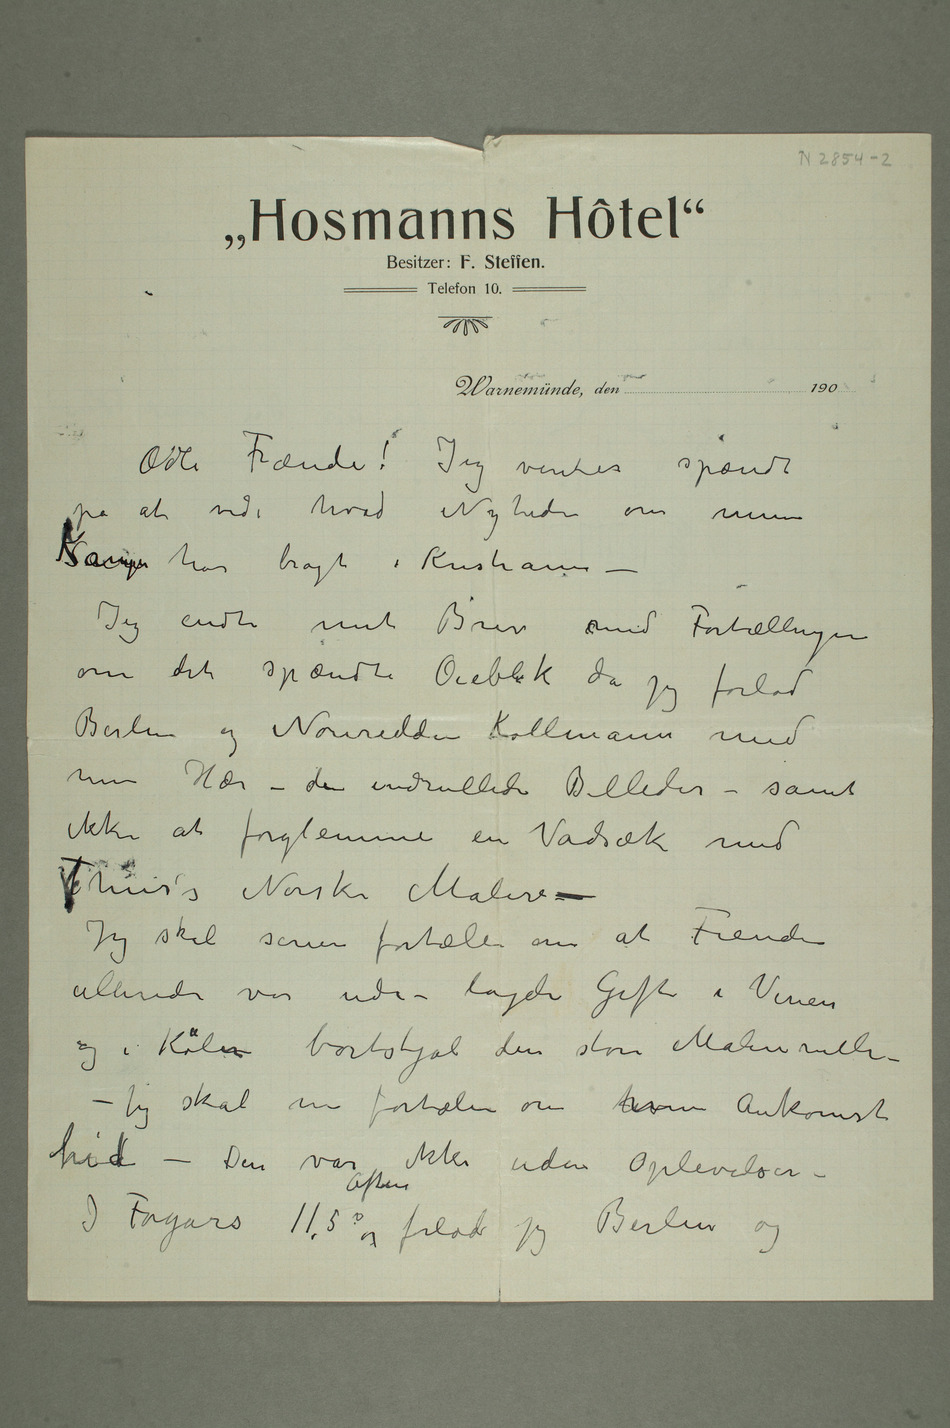 N 2854-2
„Hosmanns Hôtel“
Besitzer: F. Steffen.
Telefon 10.
Warnemünde, den 190
Ædle Frænde! Jeg ventes spændt
på at vide hvad Nyheder om min
Kamp har bragt i Kristiania –
Jeg endte mit Brev med Fortællingen
om det spændte Øieblik da jeg forlod
Berlin og Noureddin Kollmann med
min Hær – de indrullede Billeder – samt
ikke at forglemme en Vadsæk med
Thiis's Norske Malere –
Jeg skal senere fortælle om at Fienden
allerede var ude – lagde Gift i Vinen
og i Köln bortstjal den store Malerulle –
– Jeg skal nu fortælle om min Ankomst
hid – Den var ikke uden Oplevelser –
Aften
I Forgårs 11,5 og forlod jeg Berlin og